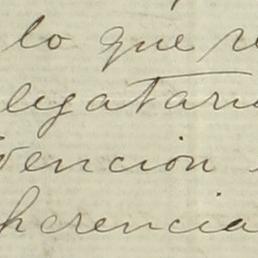 lo que re
legatari
vencion
herencia